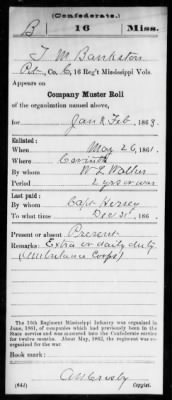 (Confederate.)
B 16 Miss.
T M Bankston
Pvt, Co. C, 16 Reg't Mississippi Vols.
Appears on
Company Muster Roll
of the organization named above,
for Jan & Feb, 1863.
Enlisted:
When May 26, 1861.
Where Corinth
By whom
Period 2 yrs or war
Last paid:
By whom Capt Hersey
To what time Dec 31, 186 .
Present or absent Present
Remarks: Extra or daily duty
(Ambulance Corps)
The 16th Regiment Mississippi Infantry was organized in
June, 1861, of companies which had previously been in the
State service and was mustered into the Confederate service
for twelve months. About May, 1862, the regiment was re-
organized for the war.
Book mark:
Copyist.